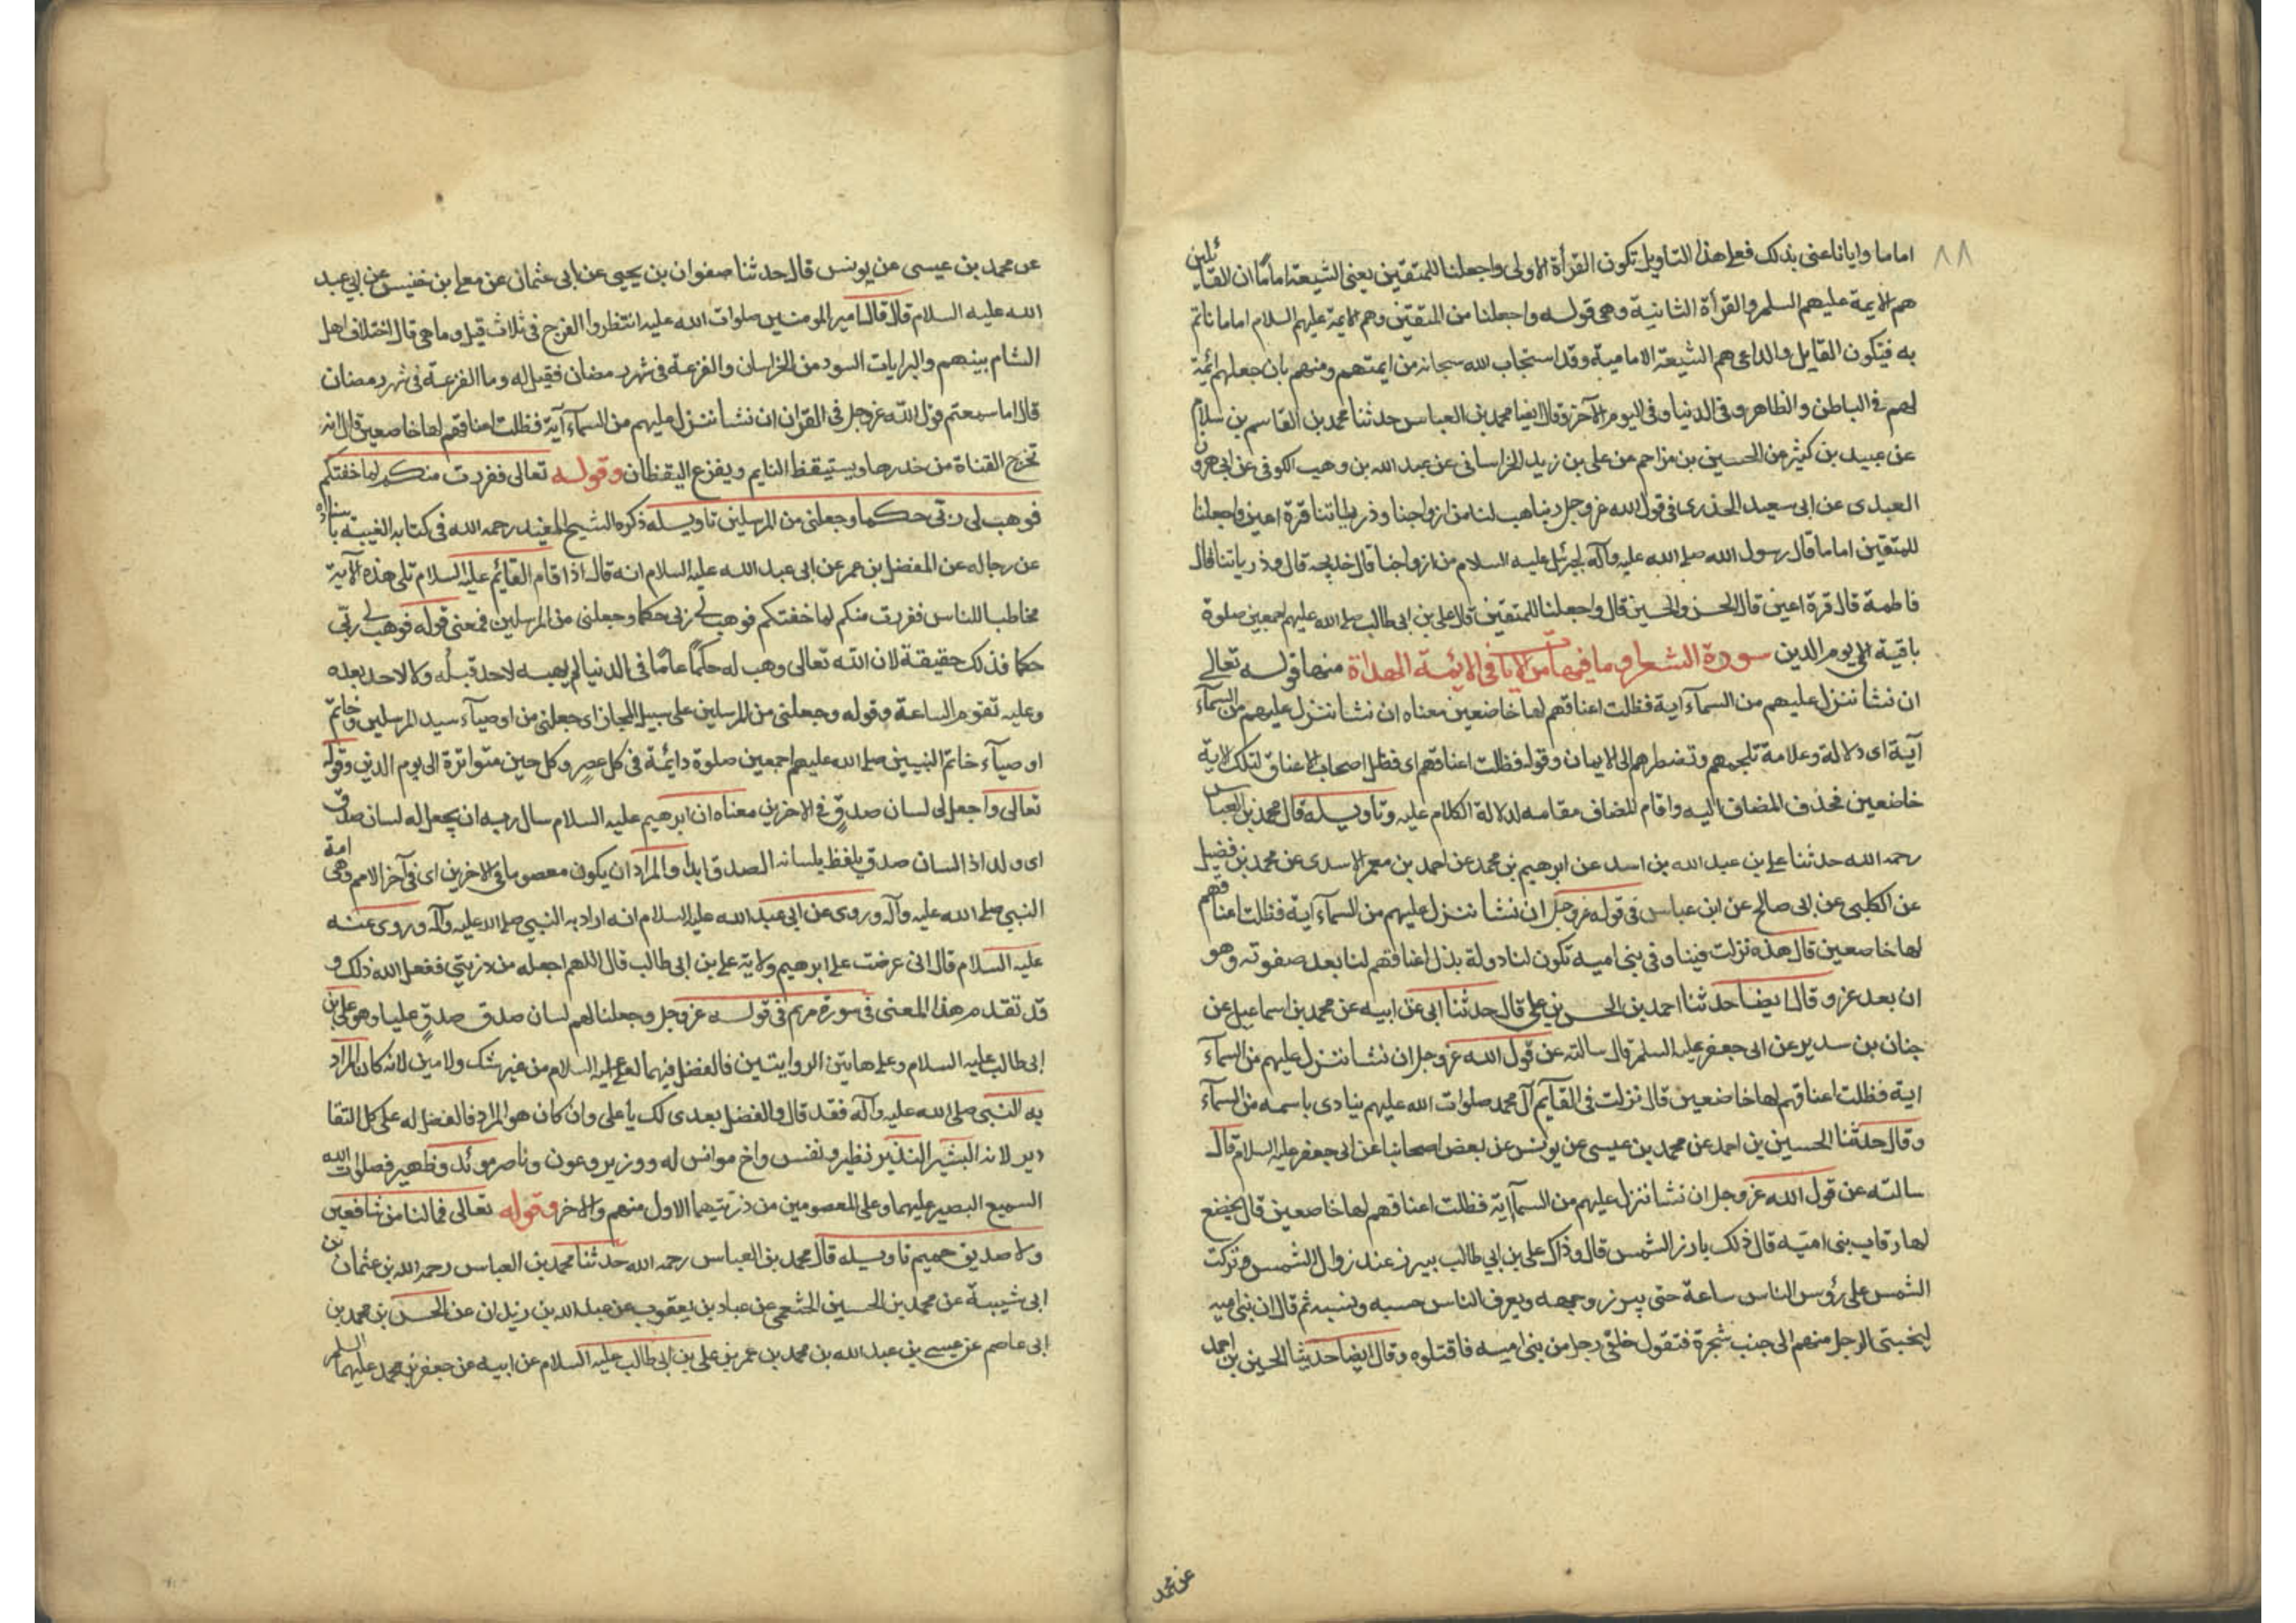 ٨٨
اماما وايانا عنى بذلك فعلى هذا التأويل تكون القرأة الاولى واجعلنا للمتقين يعنى الشيعة اماما ان القائلين
هم الايمة عليهم السلم والقرأة الثانية وهى قوله واجعلنا من المتقين وهم الايمة عليهم السلام اماما ناتم
به فيكون القايل والداعى هم الشيعة الامامية وقد استجاب الله سبحانه من ايمتهم ومنهم بان جعلهم ائمة
لهم فى الباطن والظاهر وفى الدنيا وفى اليوم الآخر وقال ايضا محمد بن العباس حدثنا محمد بن القاسم بن سلام
عن عبيد بن كثير عن الحسين بن مزاحم عن على بن زيد الخراسانى عن عبد الله بن وهب الكوفى عن ابى هرون
العبدى عن ابى سعيد الخدرى فى قول الله عز وجل ربنا هب لنا من ازواجنا وذرياتنا قرة اعين واجعلنا
للمتقين اماما قال رسول الله صلى الله عليه وآله لجبرئيل عليه السلام من ازواجنا قال خديجه قال وذرياتنا قال
فاطمة قال قرة اعين قال الحسن والحسين قال واجعلنا للمتقين قال على بن ابى طالب صلى الله عليهم اجمعين صلوة
باقية الى يوم الدين سورة الشعرا وما فيها من الايات فى الائمة الهداة منها قوله تعالى
ان نشأ ننزل عليهم من السمآء آية فظلت اعناقهم لها خاضعين معناه ان نشا ننزل عليهم من السمآء
آية اى دلالة وعلامة تلجهم وتضطرهم الى الايمان وقوله فظلت اعناقهم اى فظل اصحاب الاعناق لتلك الاية
خاضعين فحذف المضاف اليه واقام المضاف مقامه لدلالة الكلام عليه وتاويله قال محمد بن العباس
رحمه الله حدثنا على بن عبد الله بن اسد عن ابرهيم بن محمد عن احمد بن معمر الاسدى عن محمد بن فضيل
عن الكلبى عن ابى صالح عن ابن عباس فى قوله عز وجل ان نشا ننزل عليهم من السماء آية فظلت اعناقهم
لها خاضعين قال هذه نزلت فينا وفى بنى اميه تكون لنا دولة بذل اعناقهم لنا بعد صفوته وهو
ان بعد عز وقال ايضا حدثنا احمد بن الحسن بن على قال حدثنا ابى عن ابيه عن محمد بن اسماعيل عن
حنان بن سدير عن ابى جعفر عليه السلم قال سالته عن قول الله عز وجل ان نشا ننزل عليهم من السمآء
اية فظلت اعناقهم لها خاضعين قال نزلت فى القآيم آل محمد صلوات الله عليهم ينادى باسمه من السمآء
وقال حدثنا الحسين بن احمد عن محمد بن عيسى عن يونس عن بعض اصحابنا عن ابى جعفر عليه السلام قال
سالته عن قول الله عز وجل ان نشا ننزل عليهم من السمآ اية فظلت اعناقهم لها خاضعين قال يخضع
لها رقاب بنى اميه قال ذلك بارز الشمس قال وذاك على بن ابى طالب يبرز عند زوال الشمس وتركت
الشمس على رؤس الناس ساعة حتى يبرز وجهه ويعرف الناس حسبه ونسبه ثم قال ان بنى اميه
ليختبى الرجل منهم الى جنب شجرة فتقول خلفى رجل من بنى اميه فاقتلوه وقال ايضا حدثنا الحسين بن احمد
عن محمد
عن محمد بن عيسى عن يونس قال حدثنا صفوان بن يحيى عن ابى عثمان عن معلى بن خنيس عن ابى عبد
الله عليه السلام قال قال امير المومنين صلوات الله عليه انتظروا الفرج فى ثلاث قيل وما هى قال اختلاف اهل
الشام بينهم والرايات السود من الخراسان والفزعة فى شهر رمضان فقيل له وما الفزعة فى شهر رمضان
قال اما سمعتم قول الله عز وجل فى القران ان نشا ننزل عليهم من السمآء آية فظلت اعناقهم لها خاضعين قال انه
تخرج القناة من خدرها ويستيقظ النايم ويفزع اليقظان وقوله تعالى ففررت منكم لما خفتكم
فوهب لى ربى حكما وجعلنى من المرسلين تاويله ذكره الشيخ المفيد رحمه الله فى كتابه الغيبة باسناده
عن رجاله عن المفضل بن عمر عن ابى عبد الله عليه السلام انه قال اذا قام القائم عليه السلام تلى هذه الآية
مخاطبا للناس ففررت منكم لما خفتكم فوهب لى ربى حكما وجعلنى من المرسلين فمعنى قوله فوهب لى ربى
حكما فذلك حقيقة لان الله تعالى وهب له حكما عاما فى الدنيا لم يهبه لاحد قبله ولا لاحد بعده
وعليه تقوم الساعة وقوله وجعلنى من المرسلين على سبيل المجاز اى جعلنى من اوصيآء سيد المرسلين وخاتم
اوصيآء خاتم النبيين صلى الله عليهم اجمعين صلوة دائمة فى كل عصر وكل حين متواترة الى يوم الدين وقوله
تعالى واجعل لى لسان صدق فى الاخرين معناه ان ابرهيم عليه السلام سال ربه ان يجعل له لسان صدق
اى ولد اذا لسان صدق يلفظ بلسانه الصدق ابدا والمراد ان يكون معصوما فى الاخرين اى فى آخر الامم وهى امة
النبى صلى الله عليه وآله وروى عن ابى عبد الله عليه السلام انه اراد به النبى صلى الله عليه وآله وروى عنه
عليه السلام قال انى عرضت على ابرهيم ولاية على بن ابى طالب قال اللهم اجعله من ذريتى ففعل الله ذلك و
قد تقدم هذا المعنى فى سورة مريم فى قوله عز وجل وجعلنا لهم لسان صدق صدق عليا وهو على بن
ابى طالب عليه السلام وعلى هاتين الروايتين فالفضل فيهما لعلى عليه السلام من غير شك ولا مين لانه كان المراد
به النبى صلى الله عليه وآله فقد قال والفضل بعدى لك يا على وان كان هو المراد فالفضل له على كل التقا
دير لانه البشير النذير نظير ونفس واخ موانس له ووزير وعون وناصر مؤئد وظهير فصلوات الله
السميع البصير عليهما وعلى المعصومين من ذريتهما الاول منهم والاخر وقوله تعالى فما لنا من شافعين
ولا صديق حميم تاويله قال محمد بن العباس رحمه الله حدثنا محمد بن العباس رحمه الله بن عثمان بن
ابى شيبة عن محمد بن الحسين الخثعمى عن عباد بن يعقوب عن عبد الله بن زيدان عن الحسن بن محمد بن
ابى عاصم عن عيسى بن عبد الله بن محمد بن عمر بن على بن ابى طالب عليه السلام عن ابيه عن جعفر بن محمد عليهما السلم